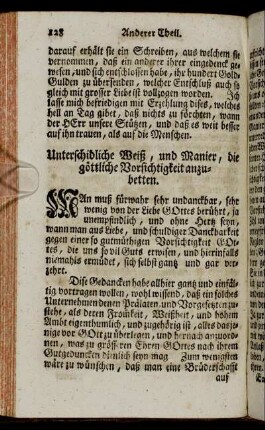 128 Anderer Theil.
darauf erhält sie ein Schreiben, aus welchem sie
vernommen, daß ein anderer ihrer eingedenck ge-
wesen, und sich entschlossen habe, ihr hundert Gold-
Gulden zu übersenden, welcher Entschluß auch so
gleich mit grosser Liebe ist vollzogen worden. Ich
lasse mich befriedigen mit Erzehlung dises, welches
hell an Tag gibt, daß nichts zu förchten, wann
der HErr unsere Stützen, und daß es weit besser
auf ihn trauen, als auf die Menschen.
Unterschidliche Weiß, und Manier, die
göttliche Vorsichtigkeit anzu-
betten.
MAn muß fürwahr sehr undanckbar, sehr
wenig von der Liebe GOttes berührt, ja
unempfindlich, und ohne Hertz seyn,
wann man aus Liebe, und schuldiger Danckbarkeit
gegen einer so gutmüthigen Vorsichtigkeit GOt-
tes, die uns so vil Guts erwisen, und hierinfalls
niemahls ermüdet, sich selbst gantz und gar ver-
zehrt.
Dise Gedancken habe allhier gantz und einfäl-
tig vortragen wollen, wohl wissend, daß ein solches
Unternehmen denen Prälaten und Vorgesetzten zu-
stehe, als deren Fromkeit, Weißheit, und hohem
Ambt eigenthumlich, und zugehörig ist, alles dasje-
nige vor GOtt zu überlegen, und hernach anzuord-
nen, was zu gröss'ren Ehren GOttes nach ihrem
Gutgeduncken dienlich seyn mag Zum wenigsten
wäre zu wünschen, daß man eine Brüderschafft
auf